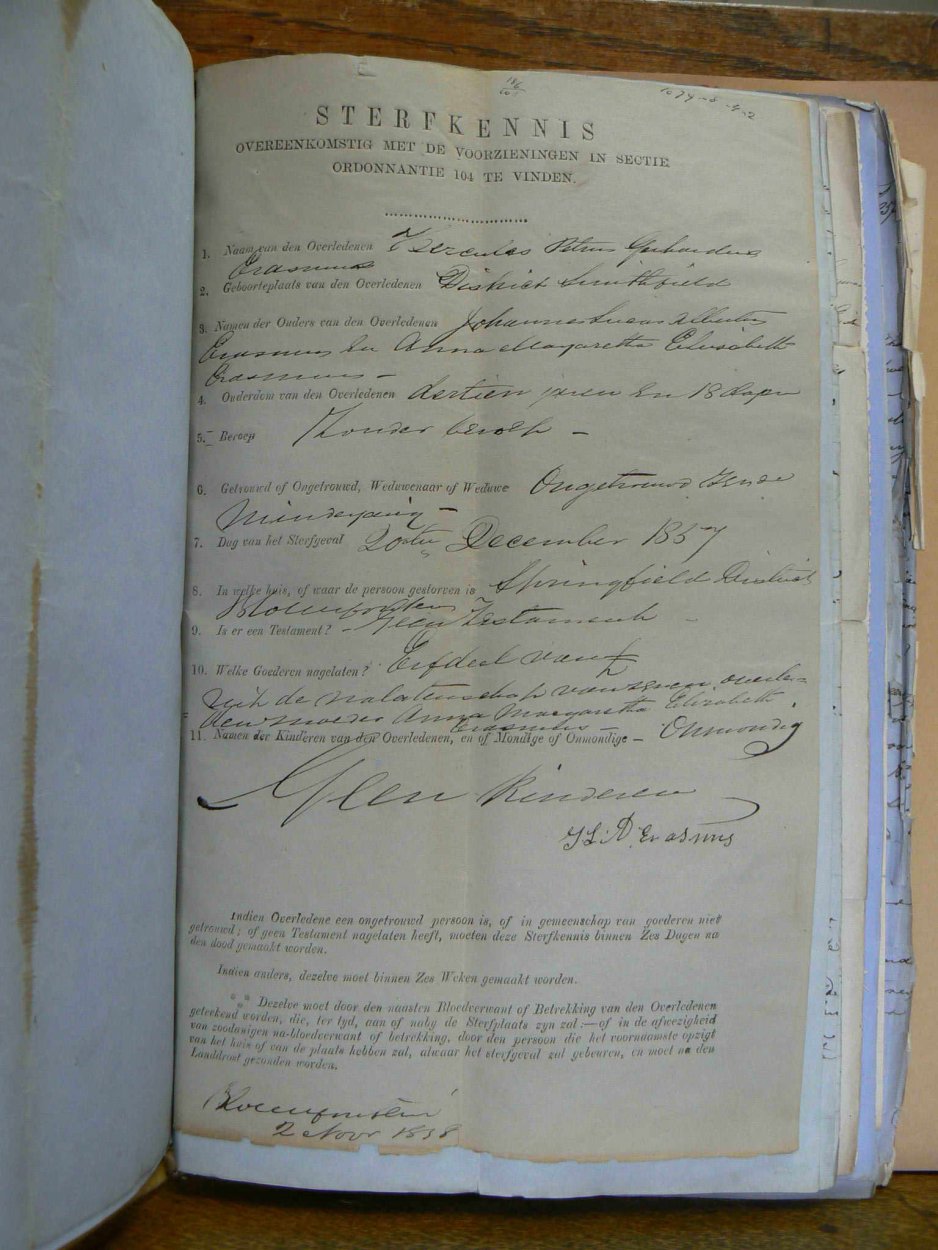 STERFKENNIS
OVEREENKOMSTIG MET DE VOORZIENINGEN IN SECTIE
ORDONNANTIE 104 TE VINDEN.
1. Naam van den Overledenen Hercules Petrus Gerhardus
Erasmus
2. Geboorteplaats van den Overledenen District Smithfield
3. Namen der Ouders van den Overledenen Johannes Lucas Albertus
Erasmus En Anna Margaretha Elisabeth
Erasmus –
4. Ouderdom van den Overledenen dertien jaren En 18 dagen
5. Beroep Zonder beroep –
6. Getrouwd of Ongetrouwd, Weduwenaar of Weduwe Ongetrouwd Zynde
Minderjarig –
7. Dag van het Sterfgeval 20sten December 1857
8. In welke huis, of waar de persoon gestorven is Springfield District
Bloemfontein
9. Is er een Testament? – Geen Testament –
10. Welke Goederen nagelaten? Erfdeel van
uit de nalatenschap van zeven overle=
den moeder Anna Margaretha Elizabeth
Erasmus
11. Namen der Kinderen van den Overledenen, en of Mondige of Onmondige – Onmondig
Geen Kinderen
J L A Erasmus
Indien Overledene een ongetrouwd persoon is, of in gemeenschap van goederen niet
getrouwd; of geen Testament nagelaten heeft, moeten deze Sterfkennis binnen Zes Dagen na
den dood gemaakt worden.
Indien anders, dezelve moet binnen Zes Weken gemaakt worden.
*** Dezelve moet door den naasten Bloedverwant of Betrekking van den Overledenen
geteekend worden, die, ter tyd, aan of naby de Sterfplaats zyn zal:—of in de afwezigheid
van zoodanigen na-bloedverwant of betrekking, door den persoon die het voornaamste opzigt
van het huis of van de plaats hebben zal, alwaar het sterfgeval zal gebeuren, en moet na den
Landdrost gezonden worden.
Bloemfontein
2 Novr 1858